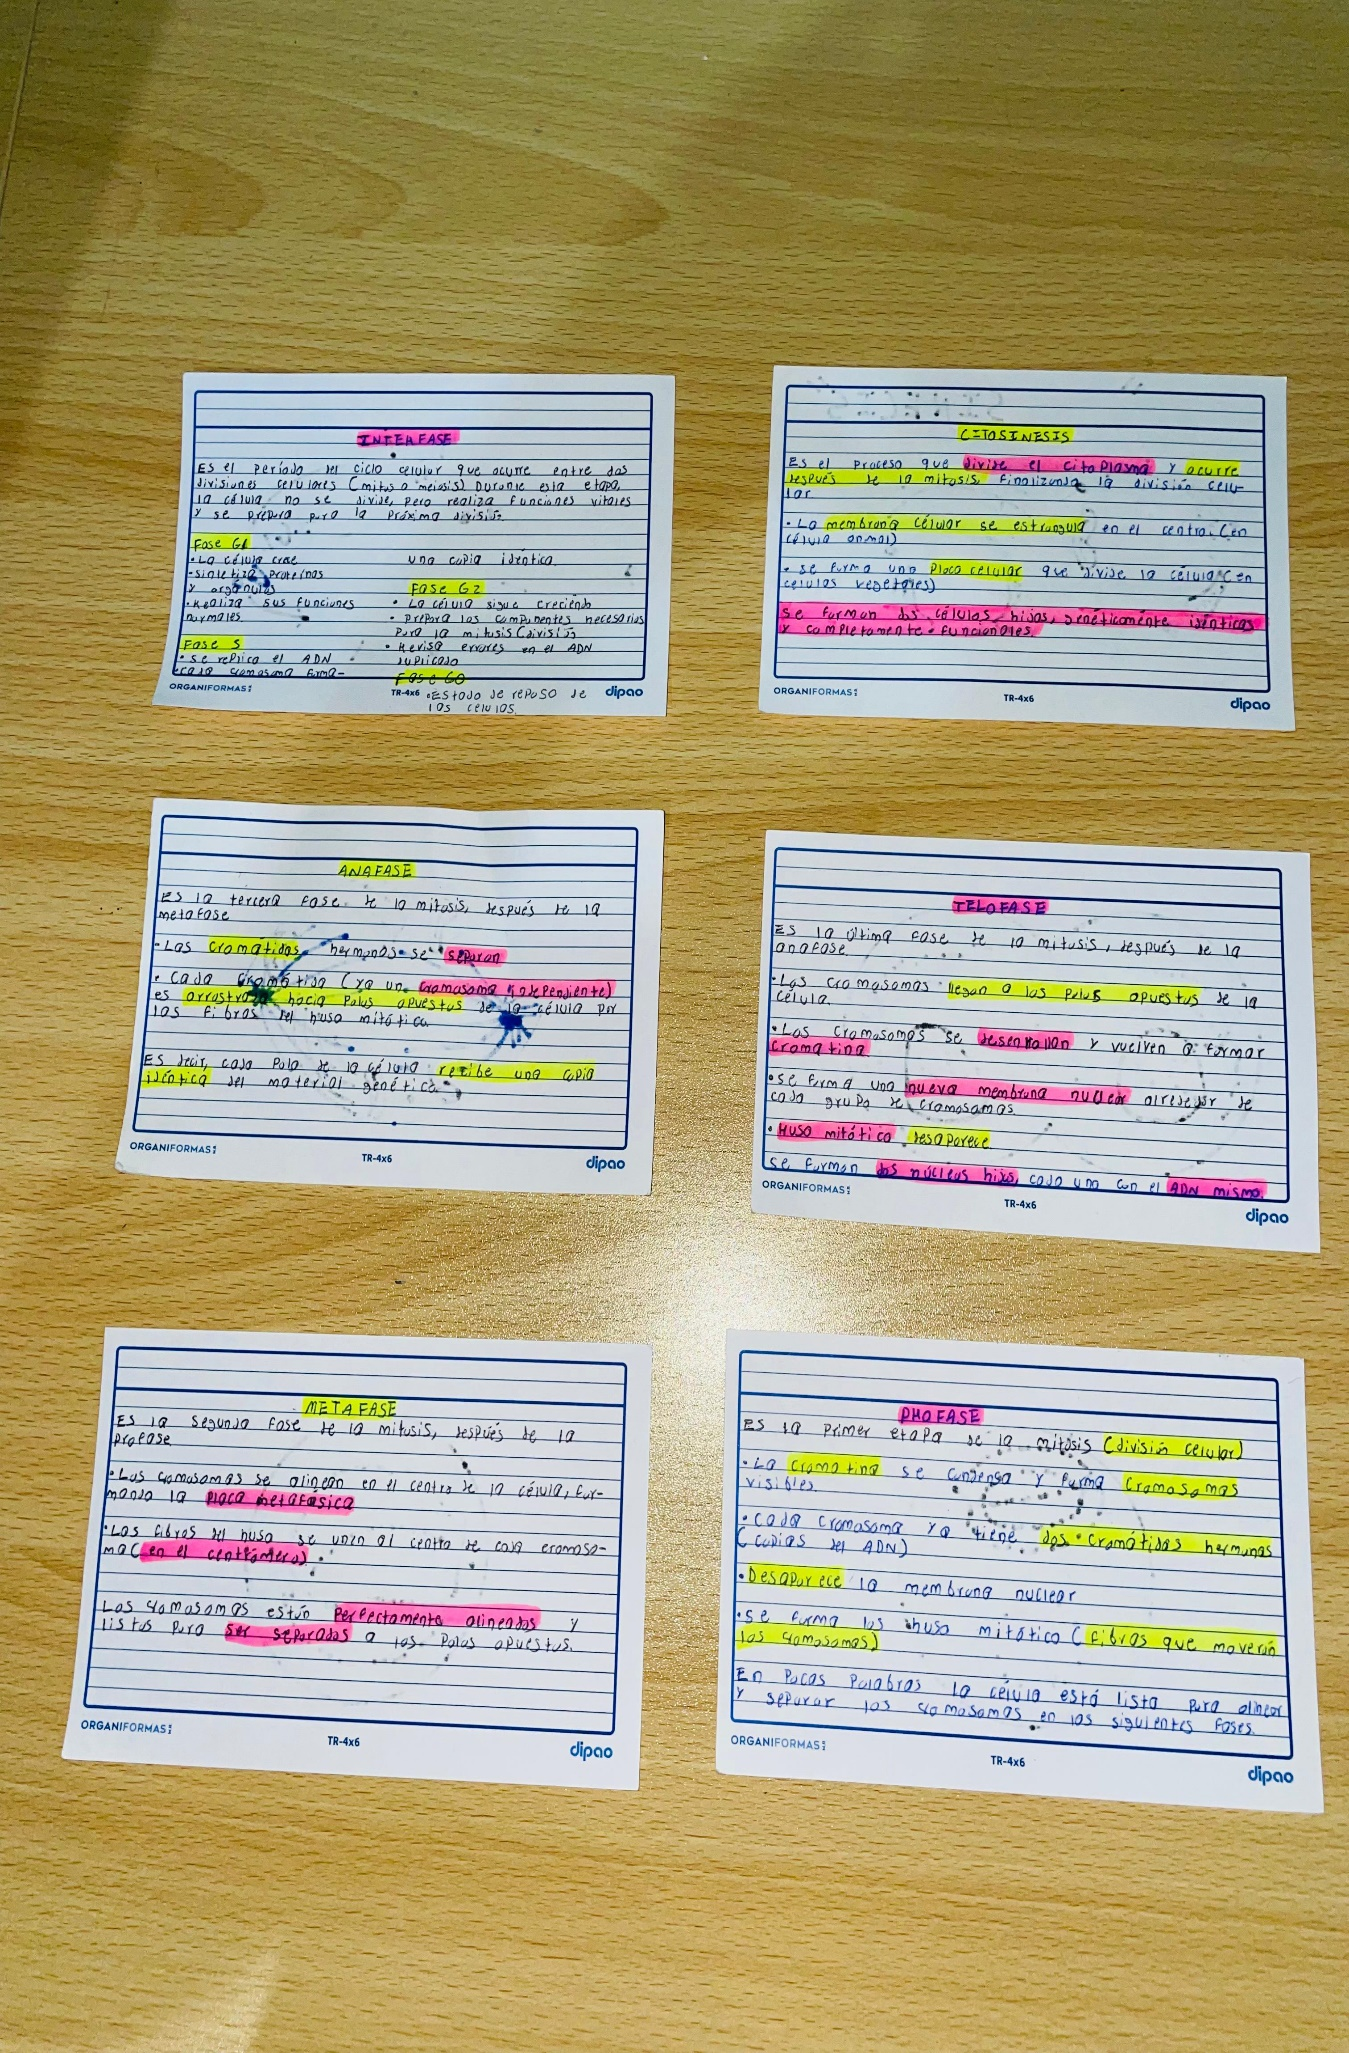 INTERFASE
Es el período del ciclo celular que ocurre entre dos
divisiones celulares (mitos o meiosis) Durante esta etapa,
la célula no se divide, pero realiza funciones vitales
y se prepara para la próxima división.
Fase G1
• La célula crece
• sintetiza proteínas
y orgánulos
• Realiza sus funciones
normales.
Fase S
• se replica el ADN
• cada cromosoma forma-
una copia idéntica.
Fase G2
• La célula sigue creciendo
• prepara los componentes necesarios
para la mitosis (división
• Revisa errores en el ADN
duplicado
Fase G0
• Estado de reposo de
las células.
ORGANIFORMAS
TR-4x6
dipao
CITOSINESIS
Es el proceso que divide el citoplasma y ocurre
después de la mitosis, finalizando la división celu-
lar
• La membrana célular se estrangula en el centro. (en
célula animal)
• se forma una placa celular que divide la célula (en
celulas vegetales)
se forman dos células hijas, genéticamente idénticas
y completamente funcionales.
ORGANIFORMAS
TR-4x6
dipao
ANAFASE
Es la tercera fase de la mitosis, después de la
metafase
• Las cromátidas hermanas se separan
• Cada cromátida (ya un cromosoma independiente)
es arrastrada hacia polos opuestos de la célula por
las fibras del huso mitótico.
Es decir, cada polo de la célula recibe una copia
idéntica del material genético.
ORGANIFORMAS
TR-4x6
dipao
TELOFASE
Es la última fase de la mitosis, después de la
anafase.
• Los cromosomas llegan a los polos opuestos de la
célula.
• Los cromosomas se desenrollan y vuelven a formar
cromatina
• se forma una nueva membrana nuclear alrededor de
cada grupo de cromosomas
• Huso mitótico desaparece
se forman dos núcleos hijos, cada uno con el ADN mismo.
ORGANIFORMAS
TR-4x6
dipao
METAFASE
Es la segunda fase de la mitosis, después de la
profase
• Los cromosomas se alinean en el centro de la célula, for-
mando la placa metafásica
• Las fibras del huso se unen al centro de cada cromoso-
ma (en el centrómero)
Los cromosomas están perfectamente alineados y
listos para ser separados a los polos opuestos.
ORGANIFORMAS
TR-4x6
dipao
PROFASE
Es la primer etapa de la mitosis (división celular)
• La cromatina se condensa y forma cromosomas
visibles.
• Cada cromosoma ya tiene dos cromátidas hermanas
(copias del ADN)
• Desaparece la membrana nuclear
• se forma los huso mitótico (fibras que moverán
los cromosomas)
En pocas palabras la célula está lista para alinear
y separar los cromosomas en las siguientes fases.
ORGANIFORMAS
TR-4x6
dipao